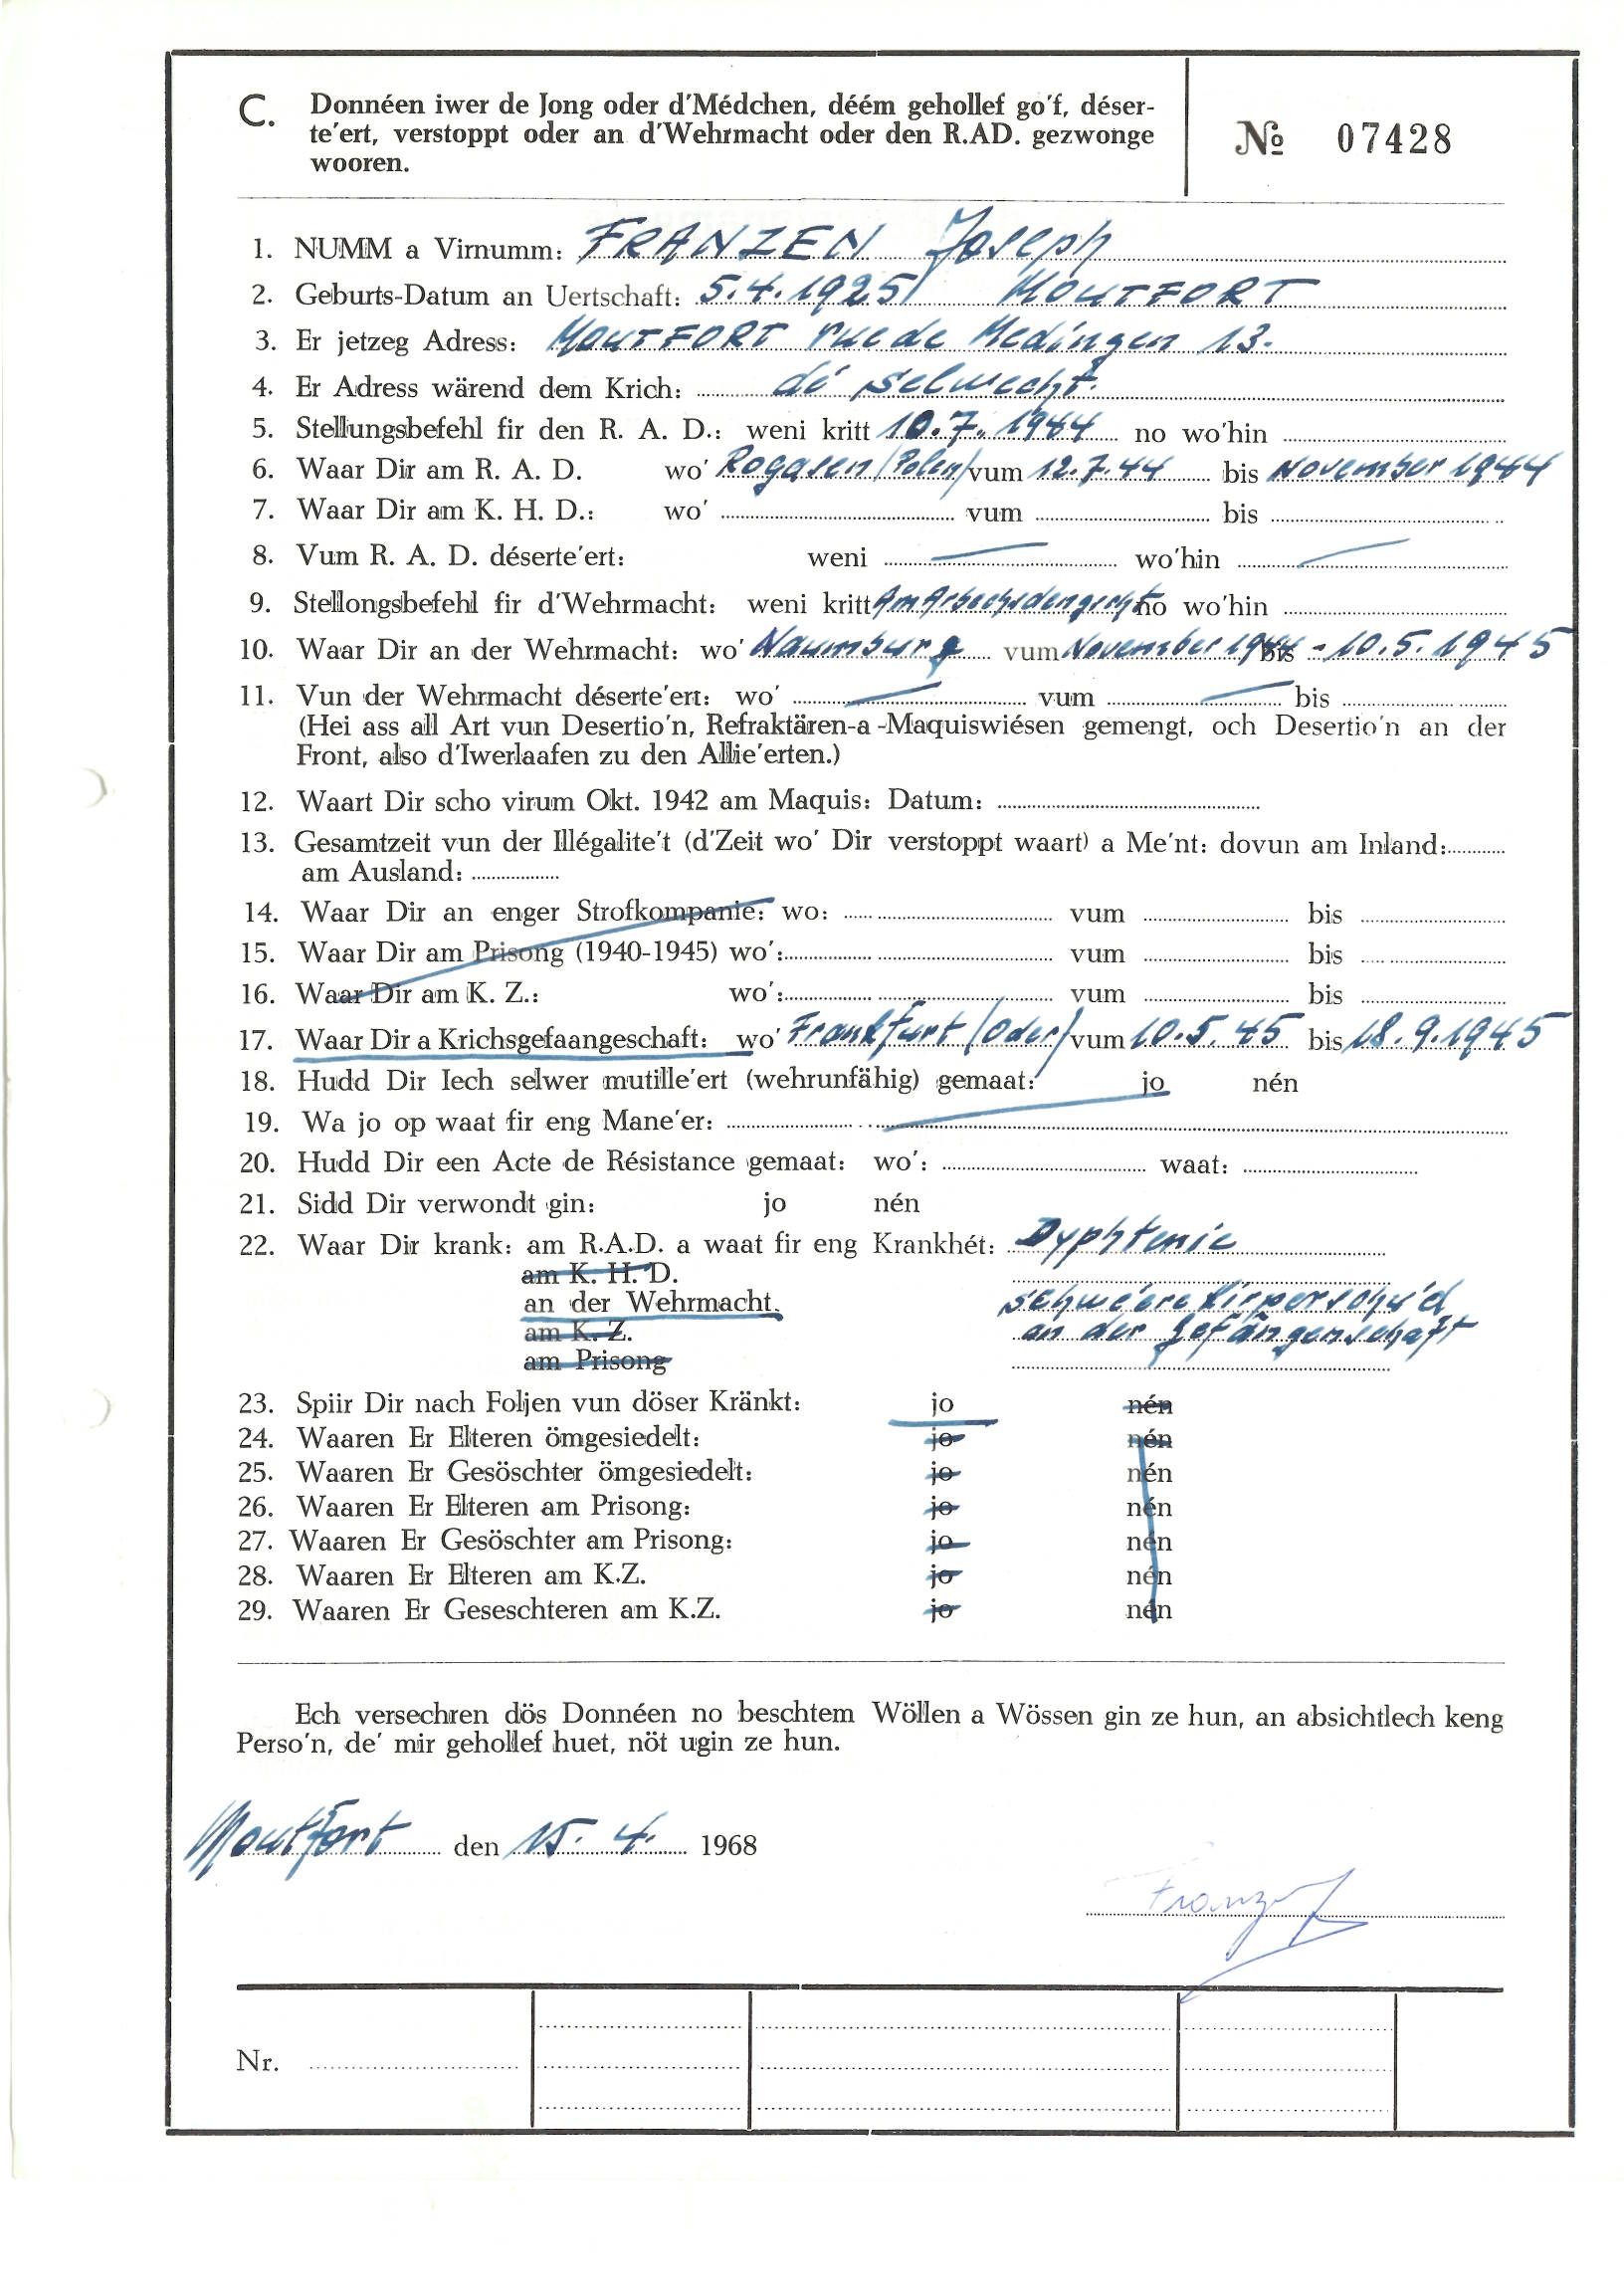 C. Donnéen iwer de Jong oder d'Médchen, déém gehollef go'f, déser-
te'ert, verstoppt oder an d'Wehrmacht oder den R.AD. gezwonge
wooren.
№ 07428
1. NUMM a Virnumm: FRANZEN Joseph
2. Geburts-Datum an Uertschaft: 5.4.1925 MOUTFORT
3. Er jetzeg Adress: MOUTFORT rue de Medingen 13.
4. Er Adress wärend dem Krich: dé selwecht.
5. Stellungsbefehl fir den R. A. D.: weni kritt 10.7.1944 no wo'hin
6. Waar Dir am R. A. D. wo' Rogasen (Polen) vum 12.7.44 bis November 1944
7. Waar Dir am K. H. D.: wo' vum bis
8. Vum R. A. D. déserte'ert: weni — wo'hin —
9. Stellongsbefehl fir d'Wehrmacht: weni kritt Am no wo'hin
10. Waar Dir an der Wehrmacht: wo' Naumburg vum November 1944 bis - 10.5.1945
11. Vun der Wehrmacht déserte'ert: wo' — vum — bis
(Hei ass all Art vun Desertio'n, Refraktären-a-Maquiswiésen gemengt, och Desertio'n an der
Front, also d'Iwerlaafen zu den Allie'erten.)
12. Waart Dir scho virum Okt. 1942 am Maquis: Datum:
13. Gesamtzeit vun der Illégalite't (d'Zeit wo' Dir verstoppt waart) a Me'nt: dovun am Inland:
am Ausland:
14. Waar Dir an enger Strofkompanie: wo: vum bis
15. Waar Dir am Prisong (1940-1945) wo': vum bis
16. Waar Dir am K. Z.: wo': vum bis
17. Waar Dir a Krichsgefaangeschaft: wo' Frankfurt (Oder) vum 10.5.45 bis 18.9.1945
18. Hudd Dir Iech selwer mutille'ert (wehrunfähig) gemaat: jo nén
19. Wa jo op waat fir eng Mane'er:
20. Hudd Dir een Acte de Résistance gemaat: wo': waat:
21. Sidd Dir verwondt gin: jo nén
22. Waar Dir krank: am R.A.D. a waat fir eng Krankhét: Dyphterie
am K. H. D.
an der Wehrmacht. schwéere Kirperschu'd
am K. Z. an der Gefängenschaft
am Prisong
23. Spiir Dir nach Foljen vun döser Kränkt: jo nén
24. Waaren Er Elteren ömgesiedelt: jo nén
25. Waaren Er Gesöschter ömgesiedelt: jo nén
26. Waaren Er Elteren am Prisong: jo nén
27. Waaren Er Gesöschter am Prisong: jo nén
28. Waaren Er Elteren am K.Z. jo nén
29. Waaren Er Geseschteren am K.Z. jo nén
Ech versechren dös Donnéen no beschtem Wöllen a Wössen gin ze hun, an absichtlech keng
Perso'n, de' mir gehollef huet, nöt ugin ze hun.
Moutfort den 15. 4. 1968
Franzen
Nr.